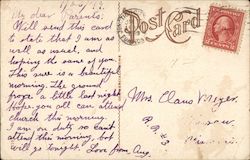 My dear Parents:
Post Card
Will send this card
to state that I am as
well as usual, and
hoping the same of you.
This sure is a beautiful
morning. The ground
froze a little last night.
Hope you all can attend
church this morning.
I am on duty so can't
attend this morning, but
will go tonight.
Love from Aug.
Mrs. Claus
R.R. #3